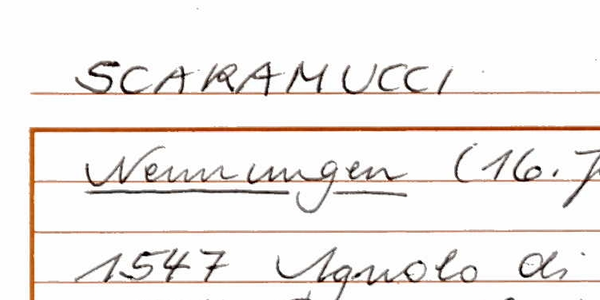 SCARAMUCCI
Nennungen (16. J
1547 Agnolo di